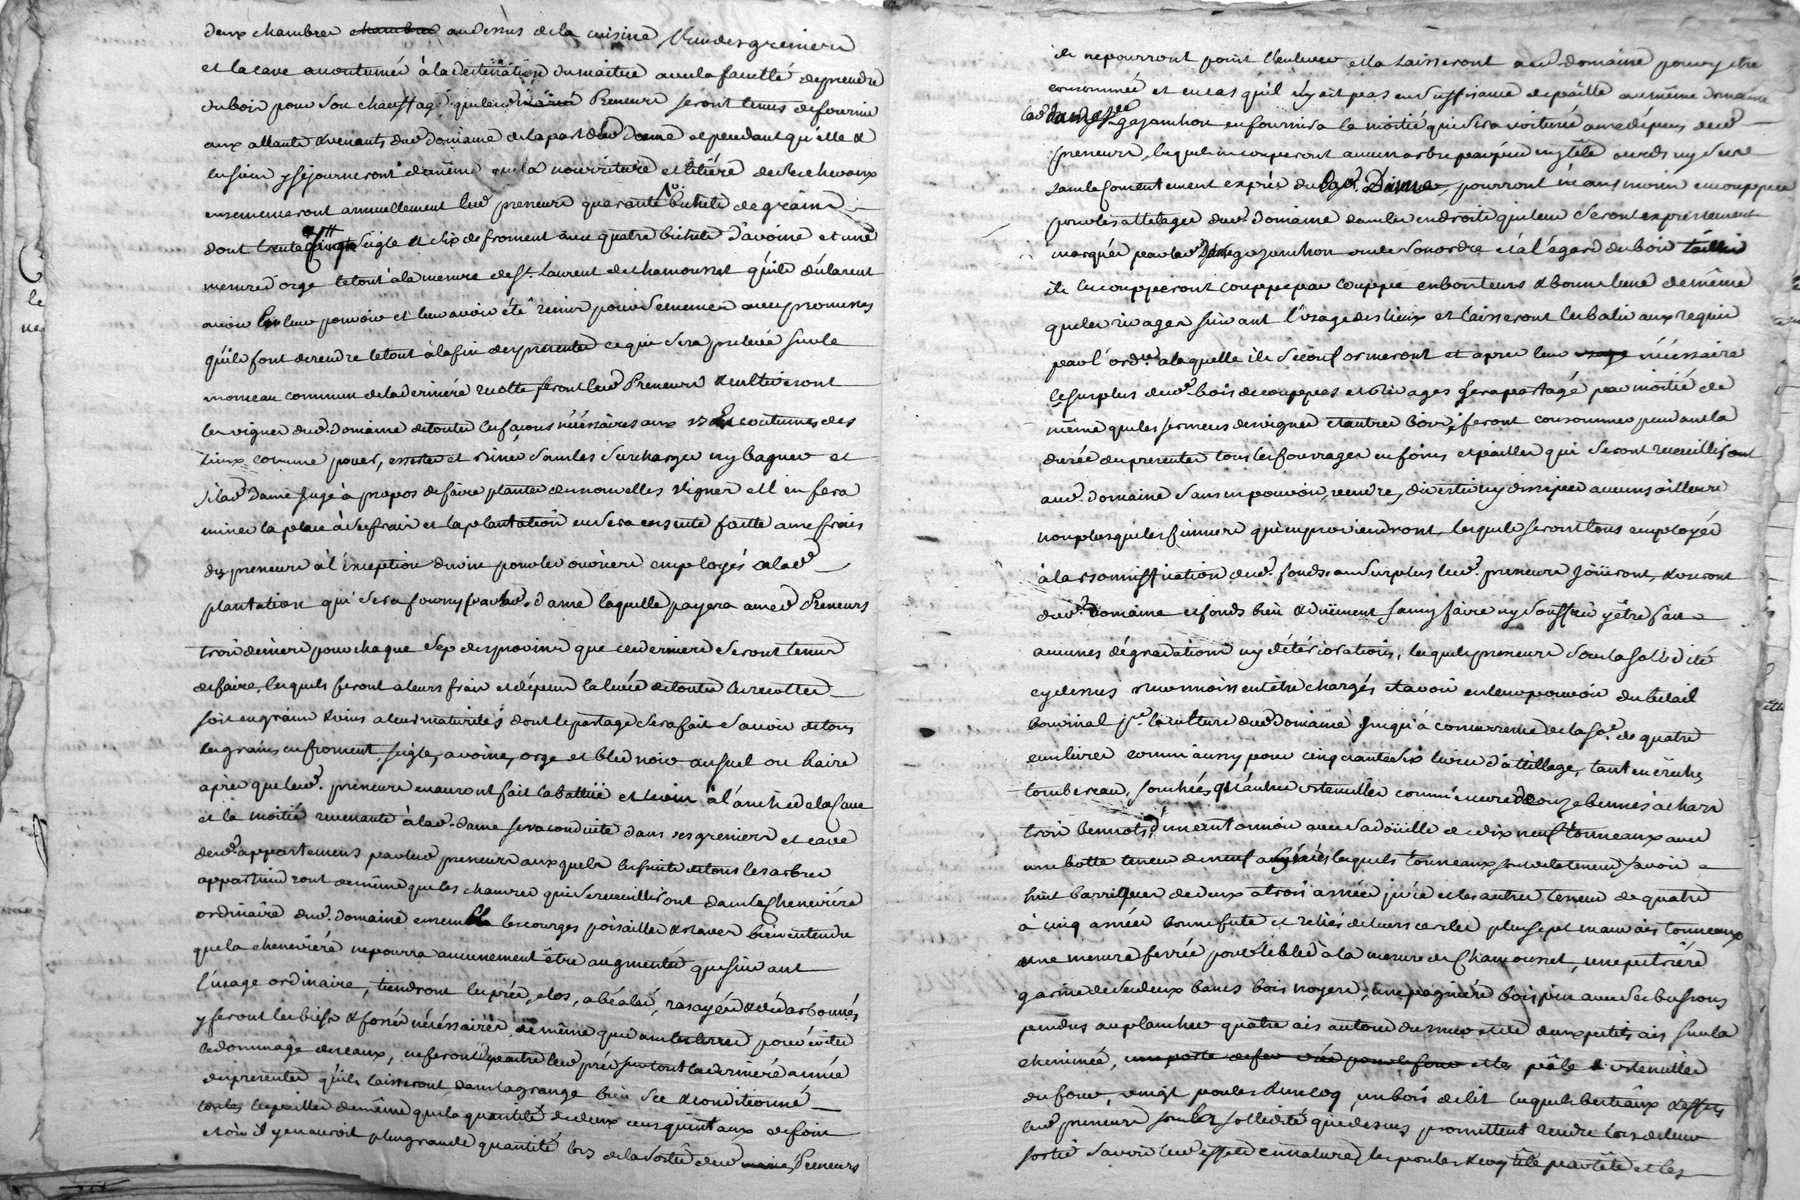 deux chambres chambres au dessus de la cuisine l'un des greniers
et la cave accoutumés à la destination du maitre avec la faculté de prendre
du bois pour son chauffage que les dits Preneurs seront tenus de fournir
aux allants & venants dud domaine de la part de lad dame et pendant qu'elle &
les siens y séjourneront de même que la nourriture et litière de ses chevaux
ensemenseront annuellement lesd preneurs quarante bichets de grains
dont trente seigle & dix de froment avec quatre bichets d'avoine et une
mesure d'orge le tout à la mesure de St Laurent de chamousset qu'ils déclarent
avoir en leur pouvoir et leur avoir été remis pour semences avec promesses
qu'ils font de rendre le tout à la fin des presentes ce qui sera prelevé sur le
monceau commun de la derniere recolte feront lesd Preneurs & cultiveront
les vignes dud domaine de toutes les façons nécéssaires aux us & coutumes des
lieux comme poüer, et biner sans les surcharger ny baguer et
si lad dame juge à propos de faire planter de nouvelles vignes ell en fera
miner la place à ses frais et la plantation en sera ensuite faitte aux frais
des preneurs à l'exception du vin pour les ouvriers employés à lad
plantation qui sera fourny par lad. dame laquelle payera auxd Preneurs
trois deniers pour chaque sep des provins que ces derniers seront tenus
de faire, lesquels feront a leurs frais et dépens la levée de toutes les recoltes
soit en grains & vins a leur maturités dont le partage sera fait savoir de tous
les grains en froment, seigle, avoine, orge et bled noir au suel ou l'aire
après que lesd. preneurs en auront fait la battüe et le vin à l'anche de la cuve
et la moitié revenante à lad. dame sera conduite dans ses greniers et cave
desd appartemens par lesd preneurs auxquels les fruits de tous les arbres
appartiendront de même que les chanvres qui se recueilliront dans la cheneviere
ordinaire dud. domaine ensemble les courges poisailles & raves bien entendu
que la cheneviere ne pourra aucunement être augmentée que suivant
l'usage ordinaire, tiendront les prés, clos, abéalés, rasayés &
y feront les biefs & fossés nécéssaires de même que aux terres pour éviter
le dommage des eaux, ne feront paitre lesd prés surtout la dernière année
des presentes qu'ils laisseront dans la grange bien sec & conditionné
toutes les pailles de même que la quantité de deux cens quintaux de foin
et où il y en auroit plus grande quantité lors de la sortie desd Preneurs
ils ne pourront point l'enlever et la laisseront aud. domaine pour y etre
consommée et en cas qu'il n'y ait pas en suffisance de paille au même domaine
lad dame de gajanchon en fournira la moitié qui sera voiturée aux dépens desd
preneurs, lesquels ne couperont aucun arbre par pied ny tête verds ny secs
sans le consentement exprés de lad. Dame, pourront néanmoins en coupper
pour les attelages dud. domaine dans les endroits qui leur seront expréssement
marqués par lad Dame gajanchon ou de son ordre et à l'égard du bois taillis
ils le coupperont couppe par couppe en bons lieux de même
que les rivages suivant l'usage des lieux et laisseront les balivaux requis
par l'ordce a laquelle ils se conformeront et apres leur usage nécéssaire
le surplus desd bois de couppes et rivages sera partagé par moitié de
même que les sermens des vignes et autres bois, feront consommer pendant la
durée des presentes tous les fourrages en foins et pailles qui seront recueillis
aud. domaine sans en pouvoir, vendre, divertir ny dissiper aucuns ailleurs
non plus que les fumiers qui en proviendront, lesquels seront tous employés
à la bonniffication desd. fonds, au surplus lesd. preneurs joüiront, & useront
dud. domaine et fonds bien & düement sans y faire ny souffrir y être fait
aucunes dégradations ny détériorations, lesquels preneurs sous la solidité
cy dessus reconnoissent être chargés et avoir en leur pouvoir du betail
bouvinal pr la culture dud domaine jusqu'à concurrence de la so. de quatre
cens livres comm'aussy pour cinquante six livres d'attillage, tant en crêches
tombereau, fourches qu'autres ustencilles comm'encore de onze bennes à char
trois bennots, d'un entonnoir avec sa doüille de dix neuf tonneaux avec
une botte teneur de neuf lesquels tonneaux sont de la teneur savoir
huit barriques de deux a trois année jurée et les autres teneur de quatre
à cinq années bonne fute et reliés de leurs cercles plus sept mauvais tonneaux
une mesure ferrée pour le bled à la mesure de Chamousset, une petriere
garnie de ses deux bancs bois noyer, une pagnière bois pin avec ses bussons
pendus au plancher quatre ais autour du mur et de deux petits ais sur la
cheminée, une porte de fer pour le four et les pêle & ustencilles
du four, vingt poules & un coq, un bois de lit lesquels bestiaux & effets
lesd preneurs sous la solidité que dessus promettent rendre lors de leur
sortie savoir les effets en nature, les poules & coq tête par tête et les